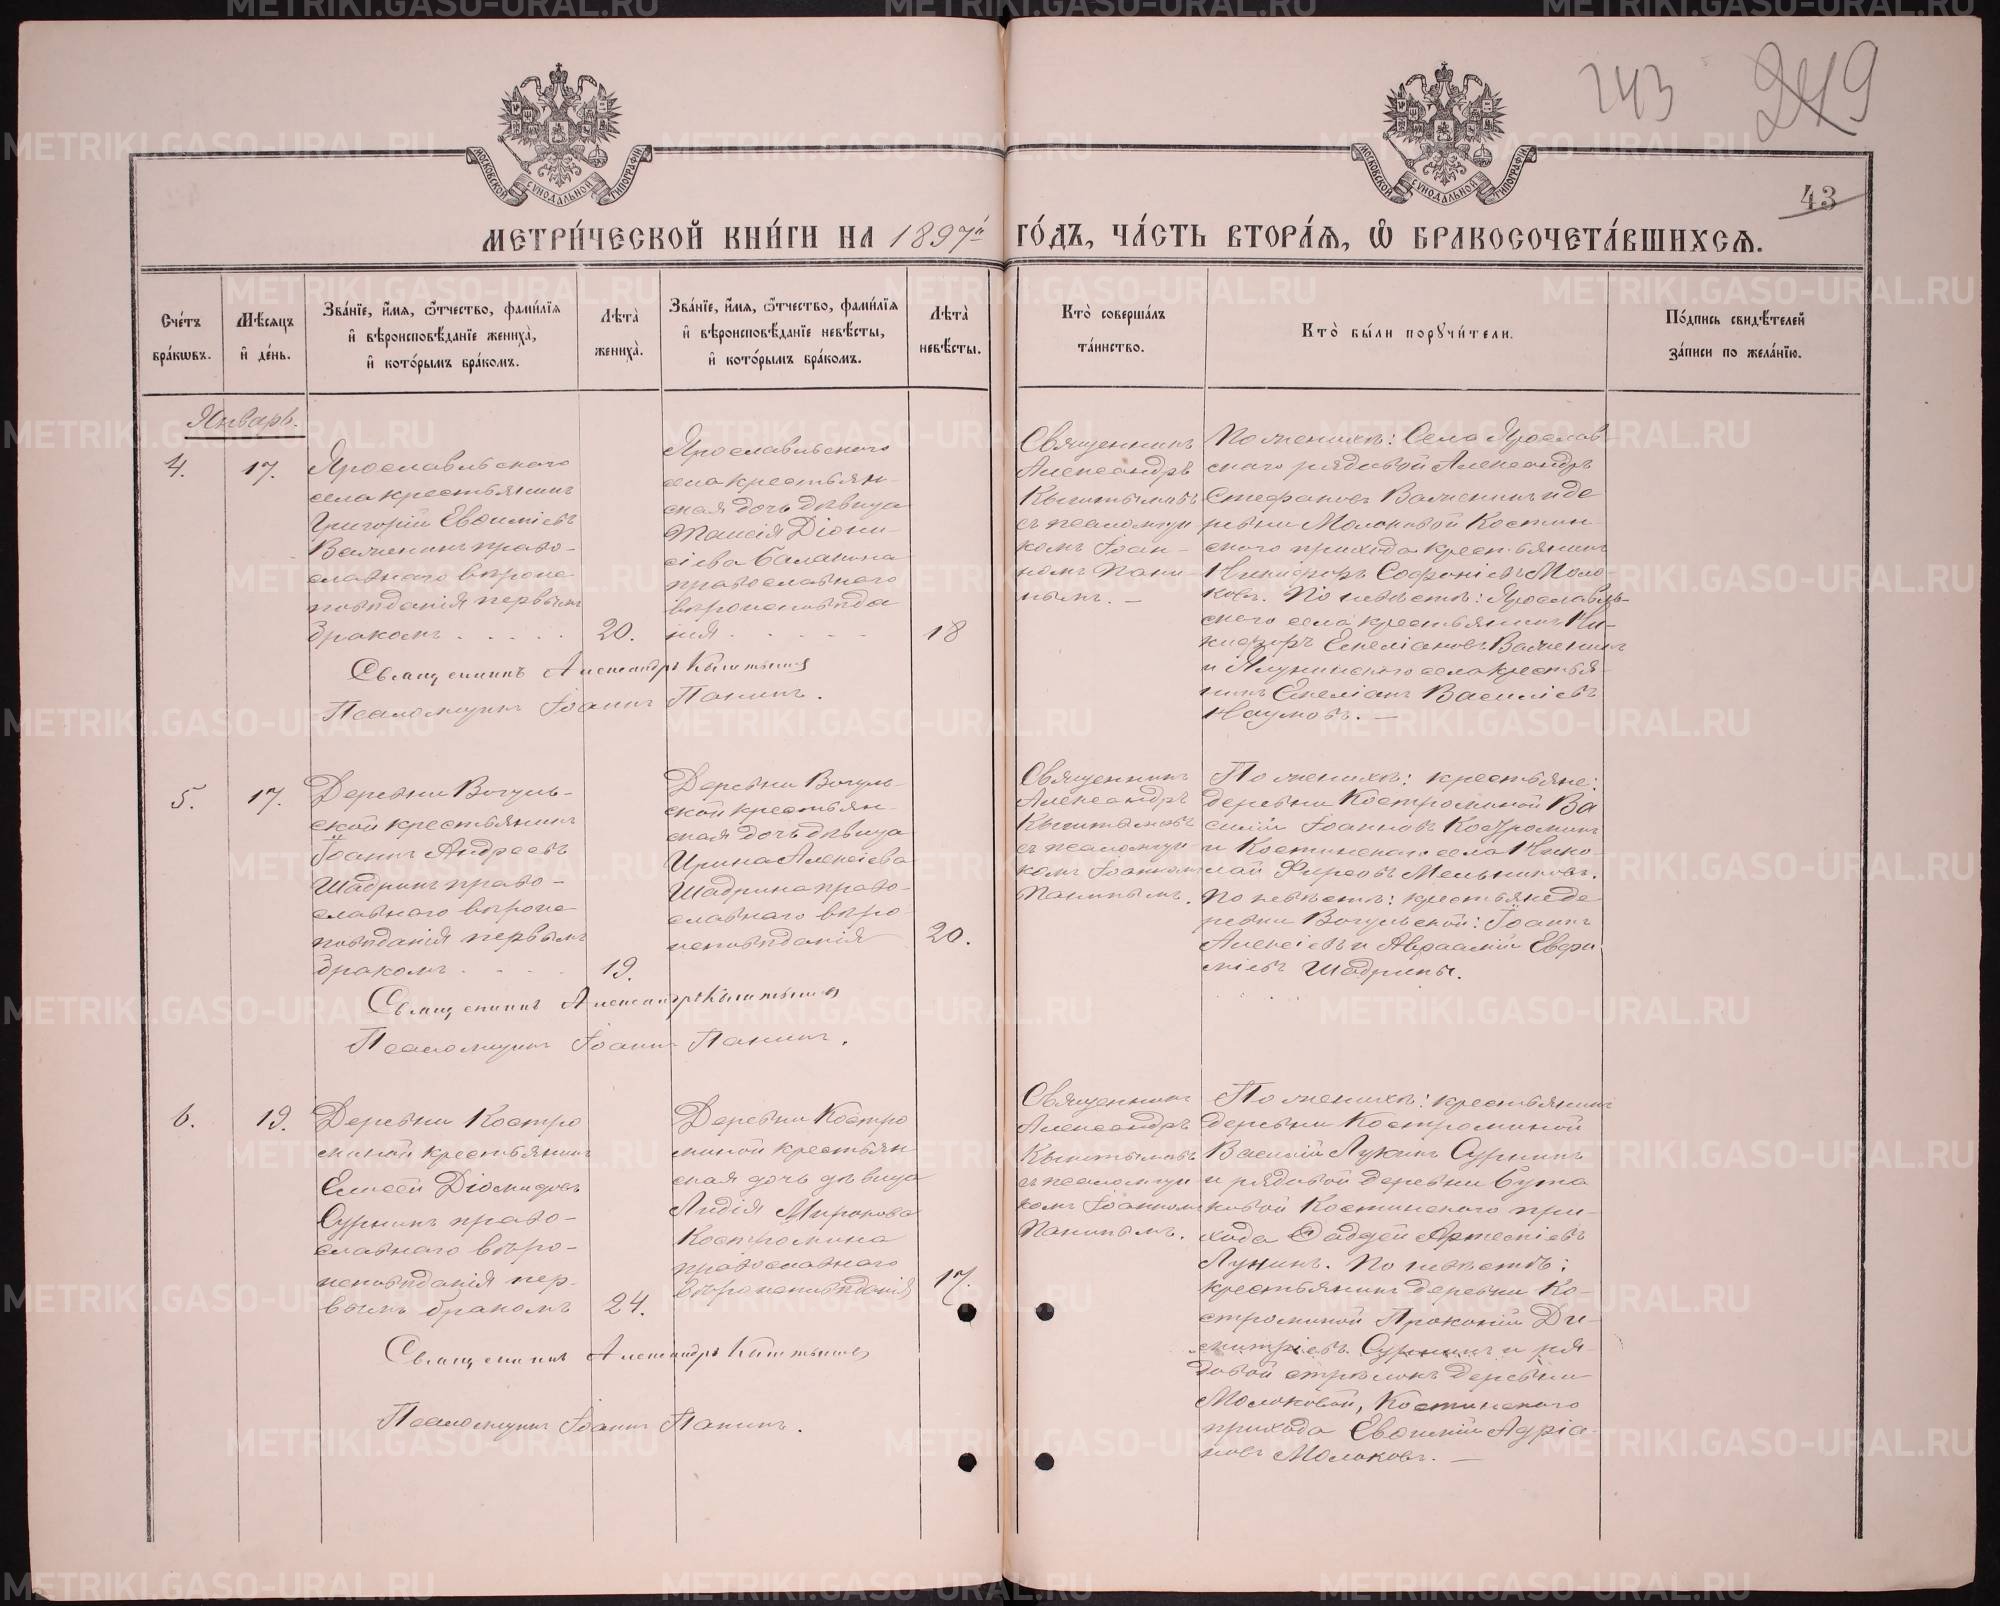 243 249
43
МОСКОВСКОЙ СѴНОДАЛЬНОЙ ТИПОГРАФІИ
МОСКОВСКОЙ СѴНОДАЛЬНОЙ ТИПОГРАФІИ
МЕТРИ́ЧЕСКОЙ КНИ́ГИ НА 1897й ГО́ДЪ, ЧА́СТЬ ВТОРА́Ѧ, Ѡ҆ БРАКОСОЧЕТА́ВШИХСѦ.
Сче́тъ бра́кѡвъ.
Мѣ́сѧцъ и҆ де́нь.
Зва́нїе, и҆́мѧ, ѻ҆́тчество, фами́лїѧ
и҆ вѣроисповѣ́данїе жениха̀,
и҆ кото́рымъ бра́комъ.
Лѣ́та̀
жениха̀.
Зва́нїе, и҆́мѧ, ѻ҆́тчество, фами́лїѧ
и҆ вѣроисповѣ́данїе невѣ́сты,
и҆ кото́рымъ бра́комъ.
Лѣ́та̀
невѣ́сты.
Кто̀ соверша́лъ
та́инство.
Кто̀ бы́ли порꙋчи́тели.
По́дпись свидѣ́телей
за́писи по жела́нїю.
Январь.
4.
17.
Ярославльскаго
села крестьянинъ
Григорій Евѳиміевъ
Вяченинъ право-
славнаго вѣроис
повѣданія первымъ
бракомъ . . . . .
20.
Ярославльскаго
села крестьян-
ская дочь дѣвица
Таисія Діони-
сіева Балакина
православнаго
вѣроисповѣда
нія . . . . .
18
Священникъ
Александръ
Кыштымовъ
съ псаломщи
комъ Іоан-
номъ Пани-
нымъ. —
По женихѣ: Села Ярослав-
скаго рядовой Александръ
Стефановъ Вяченинъ и де
ревни Молоковой Костин-
скаго прихода крестьянинъ
Никифоръ Софоніевъ Моло-
ковъ. По невѣстѣ: Ярославль-
скаго села крестьянинъ Ни-
кифоръ Емеліановъ Вяченинъ
и Ялунинскаго села крестья-
нинъ Емеліанъ Василіевъ
Наумовъ. —
Священникъ Александръ Кыштымовъ
Псаломщикъ Іоаннъ Панинъ.
5.
17.
Деревни Вогуль-
ской крестьянинъ
Іоаннъ Андреевъ
Шадринъ право-
славнаго вѣроис
повѣданія первымъ
бракомъ . . . .
19.
Деревни Вогуль-
ской крестьян-
ская дочь дѣвица
Ирина Алексіева
Шадрина право-
славнаго вѣро-
исповѣданія
20.
Священникъ
Александръ
Кыштымовъ
съ псаломщи
комъ Іоанномъ
Панинымъ.
По женихѣ: крестьяне:
деревни Костроминой Ва
силій Іоанновъ Костроминъ
и Костинскаго села Нико-
лай Фирсовъ Мельниковъ.
По невѣстѣ: крестьяне де
ревни Вогульской: Іоаннъ
Алексіевъ и Авраамій Евфи
міевъ Шадрины.
Священникъ Александръ Кыштымовъ
Псаломщикъ Іоаннъ Панинъ.
6.
19.
Деревни Костро
миной крестьянинъ
Елисей Діомидовъ
Суринъ право-
славнаго вѣро-
исповѣданія пер-
вымъ бракомъ
24.
Деревни Костро
миной крестьян
ская дочь дѣвица
Лидія Миронова
Костромина
православнаго
вѣроисповѣданія
17.
Священникъ
Александръ
Кыштымовъ
съ псаломщи
комъ Іоанномъ
Панинымъ.
По женихѣ: крестьянинъ
деревни Костроминой
Василій Лукинъ Суринъ
и рядовой деревни Бута
ковой Костинскаго при-
хода Ѳаддей Артеміевъ
Лукинъ. По невѣстѣ:
крестьянинъ деревни Ко-
строминой Прокопій Ди-
митріевъ Суринъ и ря-
довой стрѣлокъ деревни
Молоковой, Костинскаго
прихода Евѳимій Адріа-
новъ Молоковъ. —
Священникъ Александръ Кыштымовъ
Псаломщикъ Іоаннъ Панинъ.
METRIKI.GASO-URAL.RU